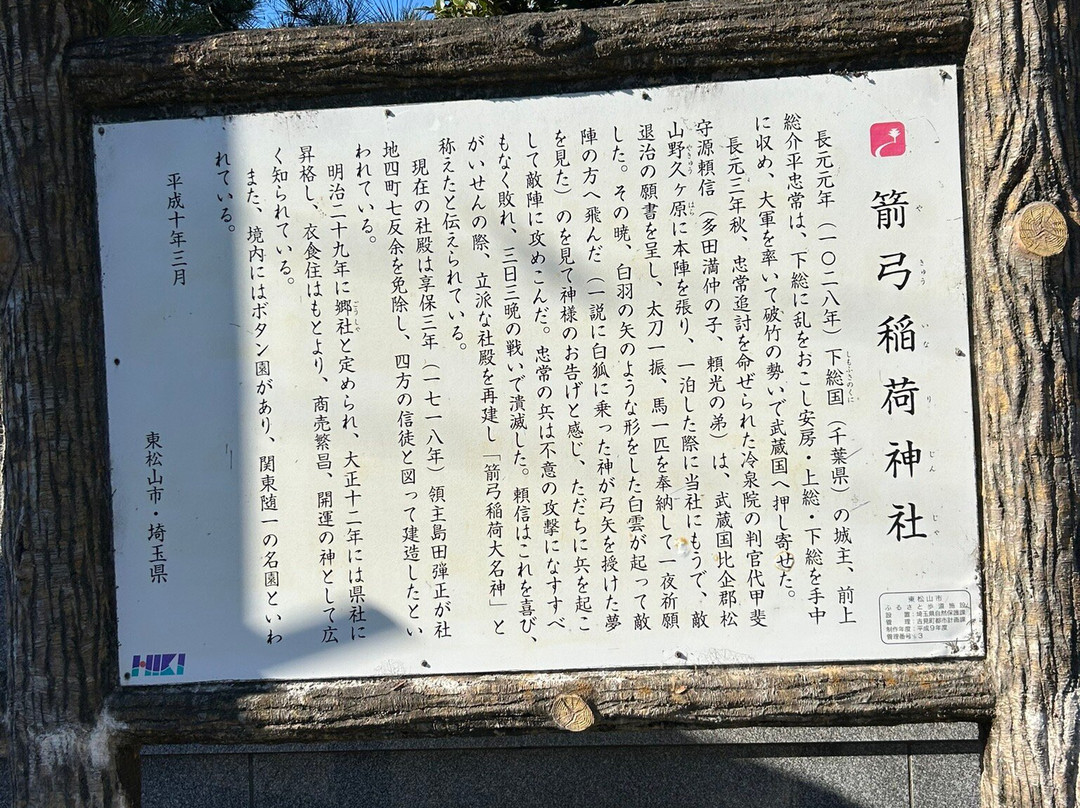 箭弓稲荷神社
や きゅう いな り じん じゃ
長元元年（一〇二八年）下総国（千葉県）の城主、前上
しもふさのくに
総介平忠常は、下総に乱をおこし安房・上総・下総を手中
に収め、大軍を率いて破竹の勢いで武蔵国へ押し寄せた。
長元三年秋、忠常追討を命ぜられた冷泉院の判官代甲斐
守源頼信（多田満仲の子、頼光の弟）は、武蔵国比企郡松
山野久ヶ原に本陣を張り、一泊した際に当社にもうで、敵
やきゅう はら
退治の願書を呈し、太刀一振、馬一匹を奉納して一夜祈願
した。その暁、白羽の矢のような形をした白雲が起って敵
陣の方へ飛んだ（一説に白狐に乗った神が弓矢を授けた夢
を見た）のを見て神様のお告げと感じ、ただちに兵を起こ
して敵陣に攻めこんだ。忠常の兵は不意の攻撃になすすべ
もなく敗れ、三日三晩の戦いで潰滅した。頼信はこれを喜び、
がいせんの際、立派な社殿を再建し「箭弓稲荷大名神」と
称えたと伝えられている。
現在の社殿は享保三年（一七一八年）領主島田弾正が社
地四町七反余を免除し、四方の信徒と図って建造したとい
われている。
明治二十九年に郷社と定められ、大正十二年には県社に
ごうしゃ
昇格し、衣食住はもとより、商売繁昌、開運の神として広
く知られている。
また、境内にはボタン園があり、関東随一の名園といわ
れている。
平成十年三月
東松山市・埼玉県
東松山市
ふるさと歩道施設
設置：埼玉県自然保護課
管理：吉見町都市計画課
制作年度：平成9年度
管理番号：3
HIKI